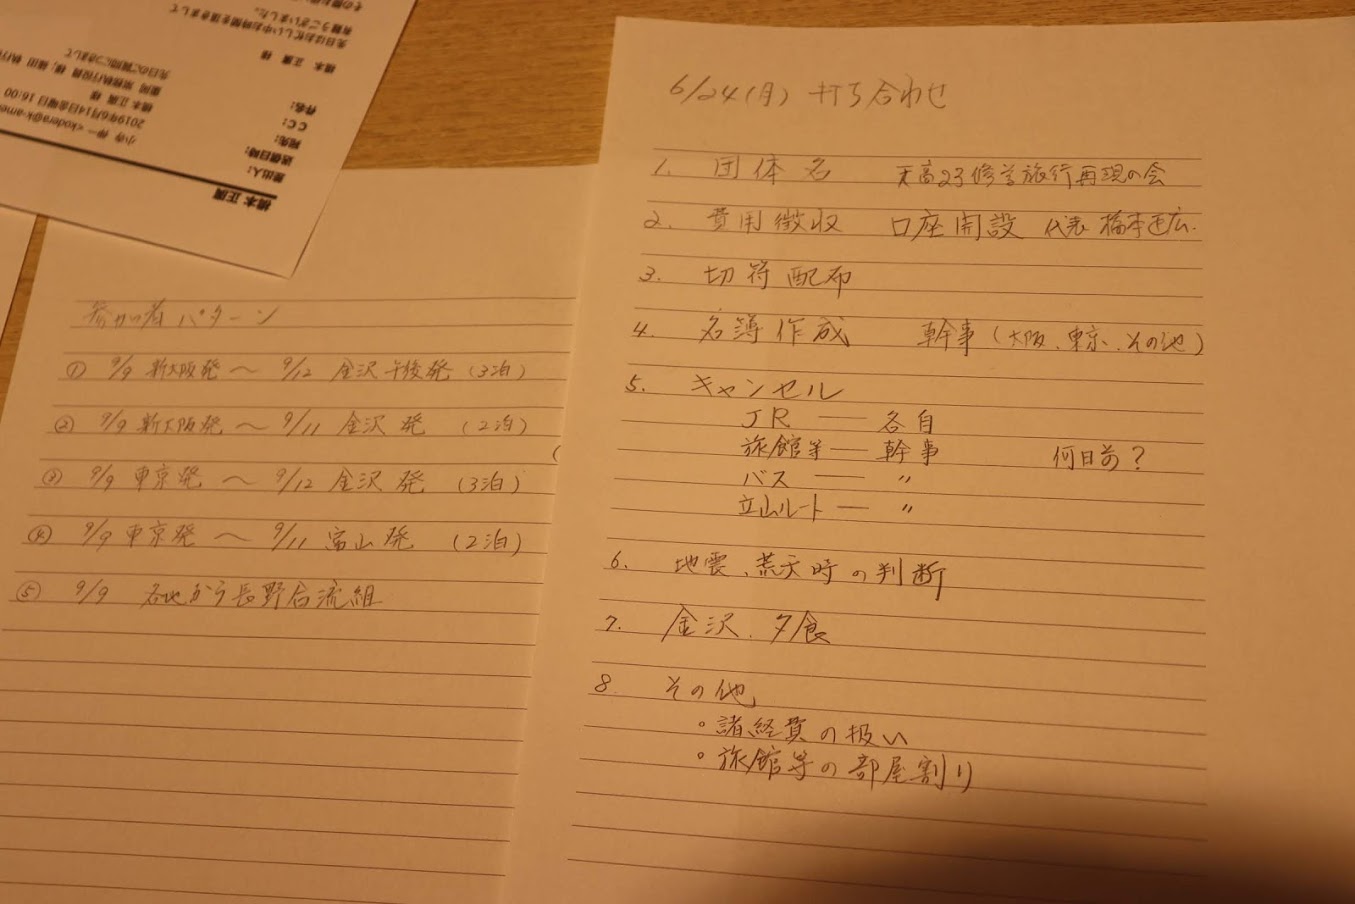 6/24(月) 打ち合わせ
1. 団体名 天高23修学旅行再現の会
2. 費用徴収 口座開設 代表 橋本正広.
3. 切符配布
4. 名簿作成 幹事(大阪、東京、その他)
5. キャンセル
JR — 各自
旅館等 — 幹事 何日前?
バス — 〃
立山ルート — 〃
6. 地震、荒天時の判断
7. 金沢、夕食
8. その他
○諸経費の扱い
○旅館等の部屋割り
参加者パターン
① 9/9 新大阪発 〜 9/12 金沢午後発 (3泊)
② 9/9 新大阪発 〜 9/11 金沢発 (2泊)
③ 9/9 東京発 〜 9/12 金沢発 (3泊)
④ 9/9 東京発 〜 9/11 富山発 (2泊)
⑤ 9/9 各地から長野合流組
橋本 正廣
差出人: 小寺 <kodera@k-ame
送信日時: 2019年6月14日金曜日 16:00
宛先: 橋本 正廣 様
CC:
件名: 先日のご質問につきまして
橋本 正廣 様
先日はお忙しい中お時間を頂きまして
有難うございました。